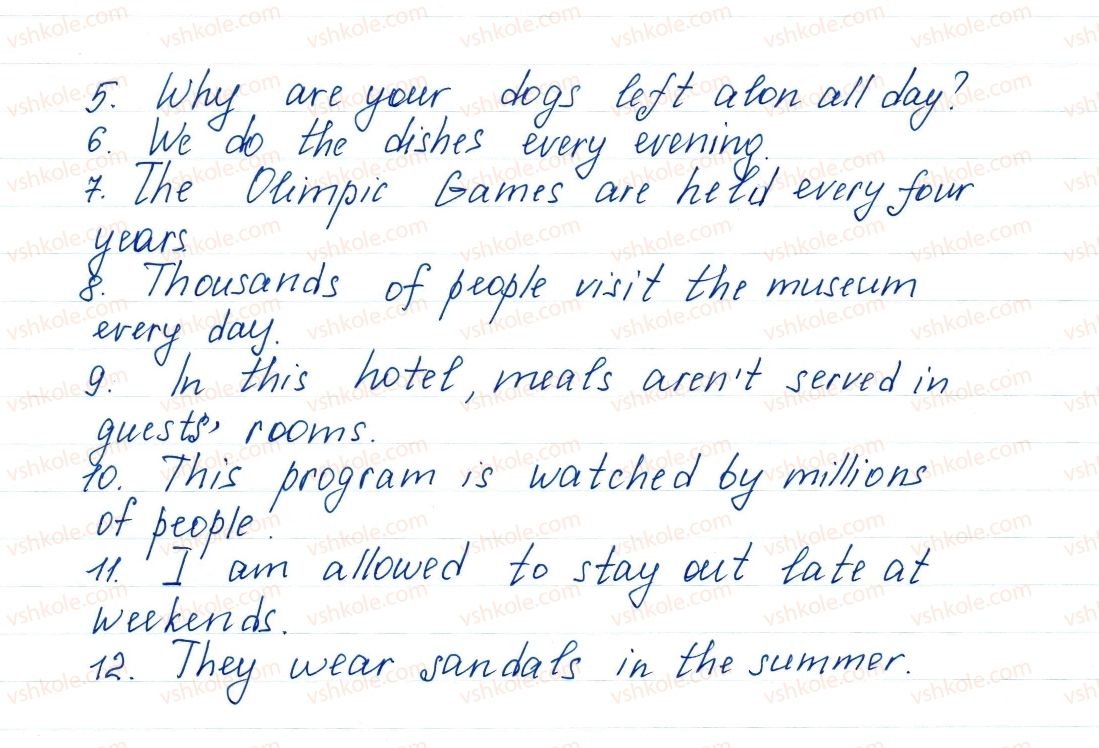 5. Why are your dogs left alon all day?
6. We do the dishes every evening.
7. The Olimpic Games are held every four
years.
8. Thousands of people visit the museum
every day.
9. In this hotel, meals aren't served in
guests' rooms.
10. This program is watched by millions
of people.
11. I am allowed to stay out late at
weekends.
12. They wear sandals in the summer.